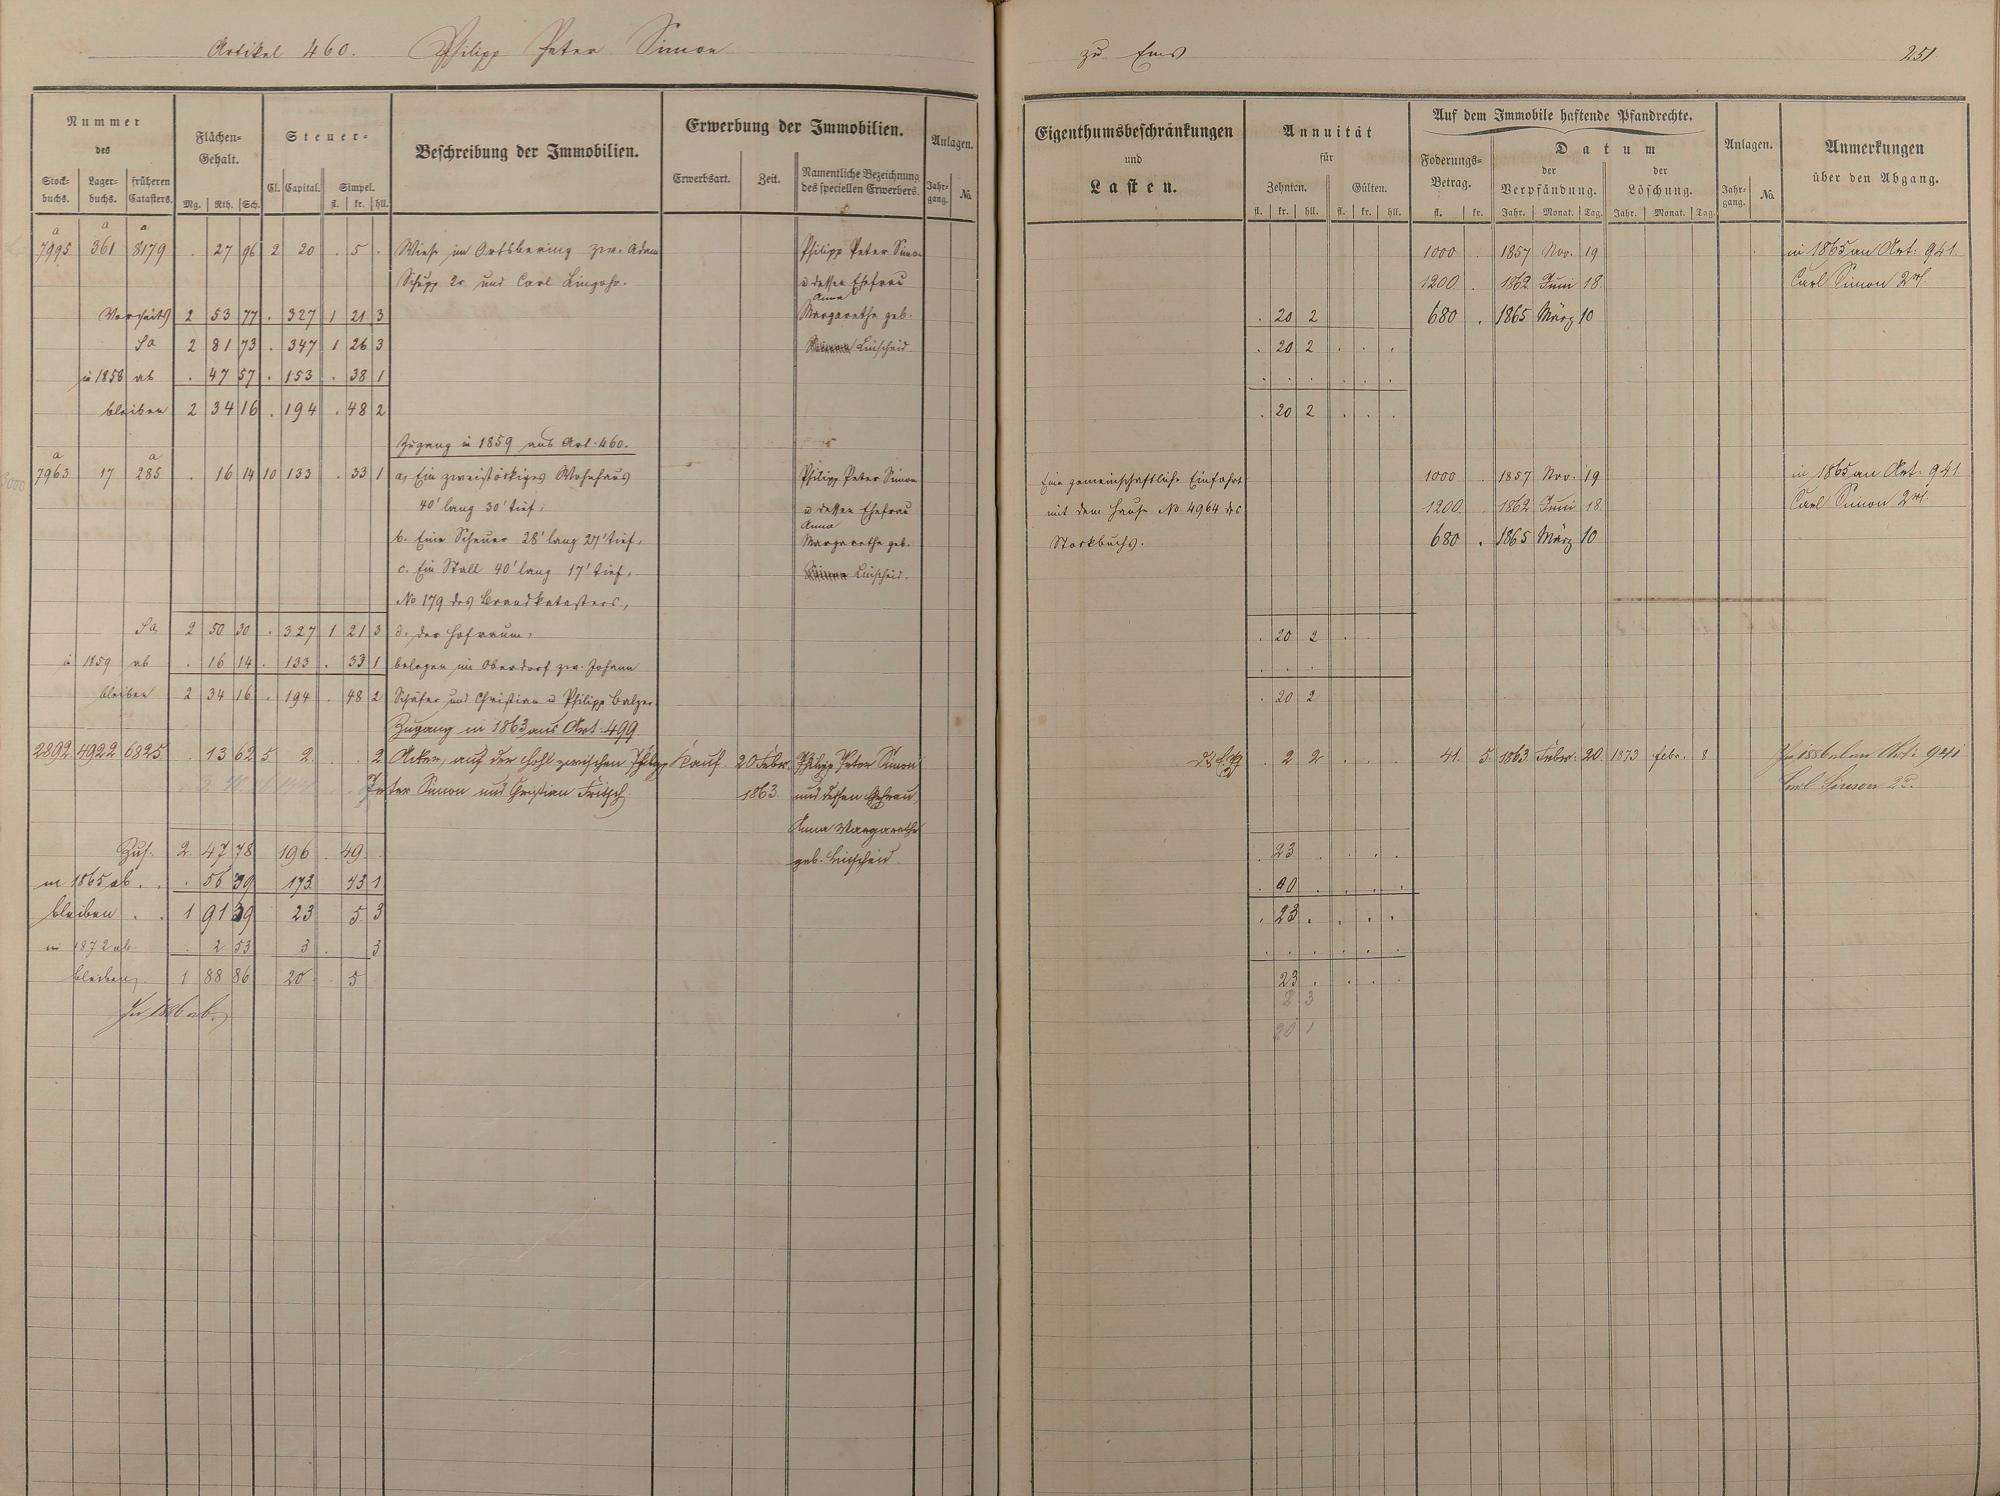 Artikel 460. Philipp Peter Simon
zu Ems
251
Nummer
des
Stock-
buchs.
Lager-
buchs.
früheren
Catasters.
Flächen-
Gehalt.
Mg. Rth. Sch.
Steuer-
Cl. Capital. Simpel.
fl. kr. hll.
Beschreibung der Immobilien.
Erwerbung der Immobilien.
Erwerbsart. Zeit. Namentliche Bezeichnung
des speciellen Erwerbers.
Anlagen.
Jahr-
gang. No.
Eigenthumsbeschränkungen
und
Lasten.
Annuität
für
Zehnten. Gülten.
fl. kr. hll. fl. kr. hll.
Auf dem Immobile haftende Pfandrechte.
Foderungs-
Betrag.
fl. kr.
Datum
der
Verpfändung.
der
Löschung.
Jahr. Monat. Tag. Jahr. Monat. Tag.
Anlagen.
Jahr-
gang. No.
Anmerkungen
über den Abgang.
a a a
7995 361 8179 . 27 96 2 20 . 5 . Wiese im Ortsbering zw. Adam Philipp Peter Simon 1000 . 1857 Nov. 19 in 1865 an Art: 941
Schupp 2r und Carl Lingohr. u dessen Ehefrau 1200 . 1862 Juni 18. Carl Simon 2r.
Anna
Vorseits 2 53 77 . 327 1 21 3 Margarethe geb. . 20 2 680 . 1865 März 10
Sa 2 81 73 . 347 1 26 3 Linscheid. . 20 2 . . .
in 1858 ab . 47 57 . 153 . 38 1 . . . . . .
bleiben 2 34 16 . 194 . 48 2 . 20 2 . . .
Zugang in 1859 aus Art. 460.
a a
7963 17 285 . 16 14 10 133 . 33 1 a, Ein zweistöckiges Wohnhaus Philipp Peter Simon Eine gemeinschaftliche Einfahrt 1000 . 1857 Nov. 19 in 1865 an Art: 941
40' lang 30' tief, u dessen Ehefrau mit dem Hause No 4964 des 1200. 1862 Juni 18. Carl Simon 2r.
Anna
b. Eine Scheuer 28' lang 27' tief, Margarethe geb. Stockbuchs. 680 . 1865 März 10
c. Ein Stall 40' lang 17' tief, Linscheid.
No 179 des Brandkatasters,
Sa 2 50 30 . 327 1 21 3 d. der Hofraum, . 20 2 .
in 1859 ab . 16 14 . 133 . 33 1 belegen im Oberdorf zw. Johann . . .
bleiben 2 34 16 . 194 . 48 2 Schäfer und Christian u Philipp Balzer. . 20 2
Zugang in 1863 aus Art: 499
2892 4922 6825 . 13 62 5 2. . 2 Acker, auf der Hohl zwischen Philipp Kauf. 20 Febr. Philipp Peter Simon . 2 2 . . . 41. 5. 1863. Febr. 20. 1873 febr. 8 In 1886 Art: 941
Peter Simon und Christian Fritsch. 1863. und dessen Ehefrau Simon 2r.
Anna Margarethe
Zus. 2. 47 78 196 . 49. . geb. Linscheid. . 23 . . . .
in 1865 ab . . . 56 39 173 43 1 . 00 . . . .
bleiben . . 1 91 39 23 5 3 . 23 . . . .
in 1872 ab . 2 53 3 . 3 . . . . . .
bleiben 1 88 86 20 . 5 23 . . . .
2 3
In 1886 ab.
20 1